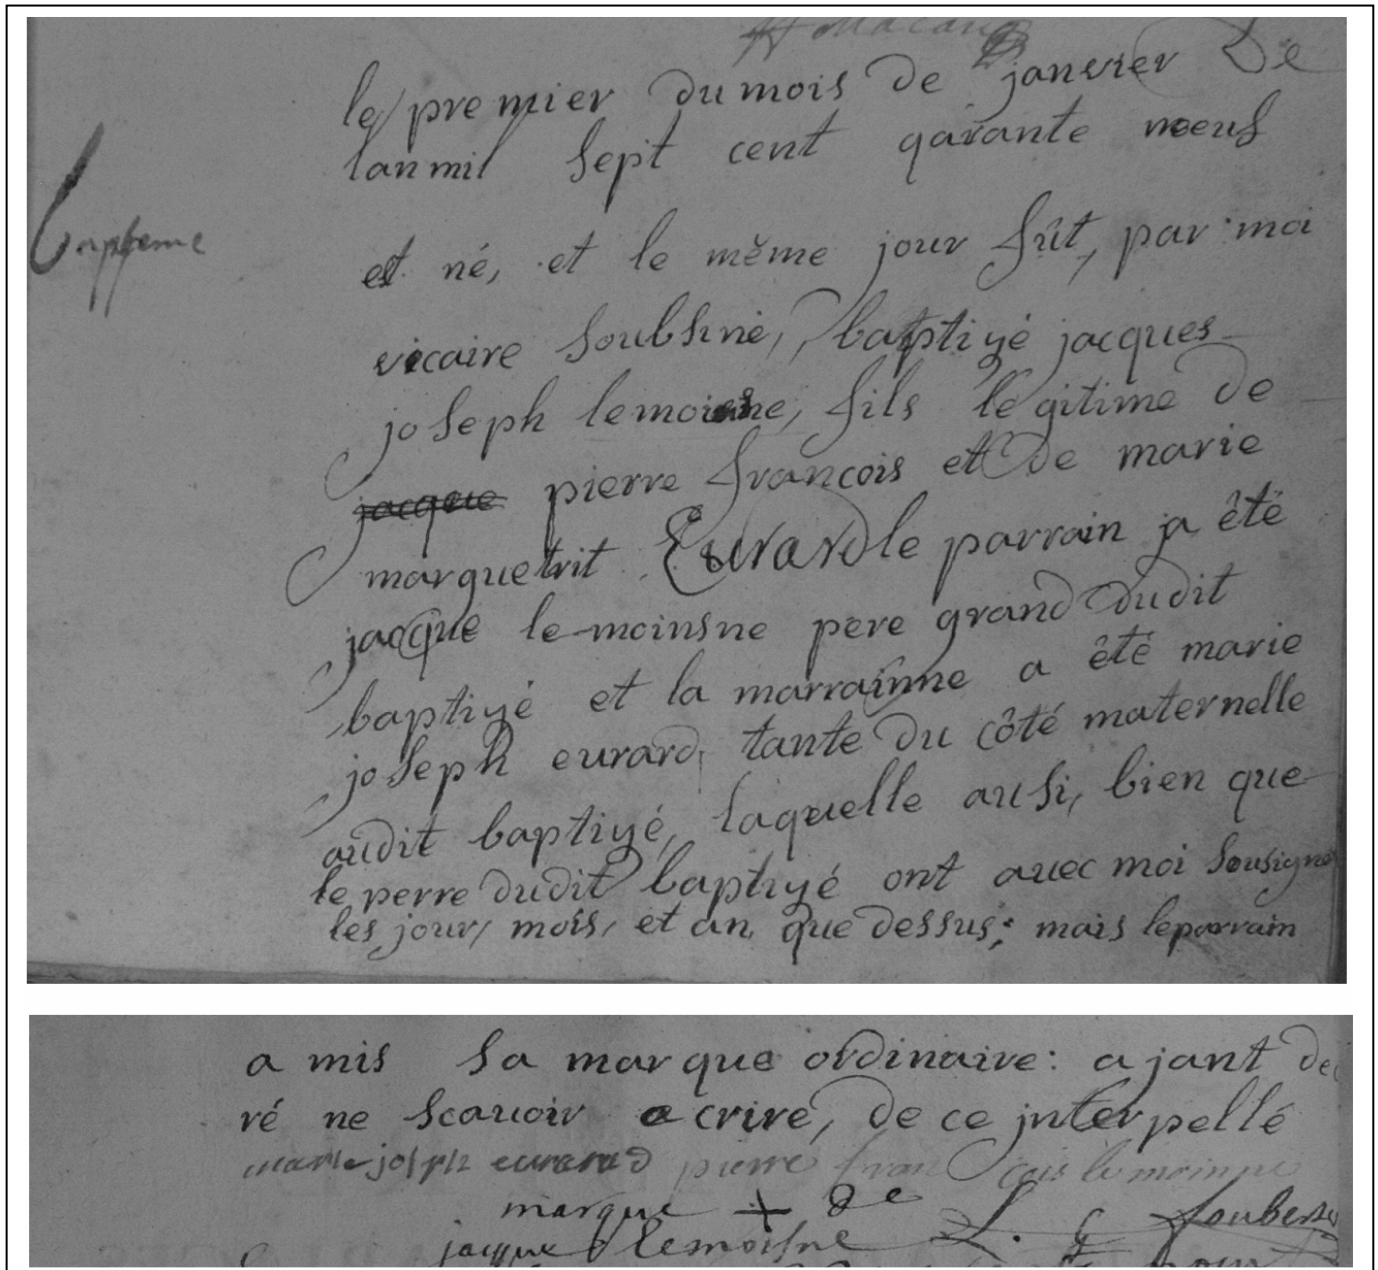 le premier du mois de janvier De
lan mil sept cent qarante neuf
bapteme
est né, et le même jour fût, par moi
vicaire soubsiné, baptiyé jacques
joseph lemoisne, fils légitime de
jacque pierre francois et de marie
marguetrit Eurard le parrain a été
jacque le moinsne pere grand dudit
baptiyé et la marrainne a été marie
joseph eurard, tante du côté maternelle
audit baptiyé, laquelle ausi, bien que
le perre dudit baptiyé ont avec moi sousigné
les jour, mois, et an, que dessus; mais le parrain
a mis sa marque ordinaire: ajant de
ré ne scauoir ecrire, de ce jnterpellé
marie joseph eurard pierre francois lemoinne
marque + de
jacque lemoisne